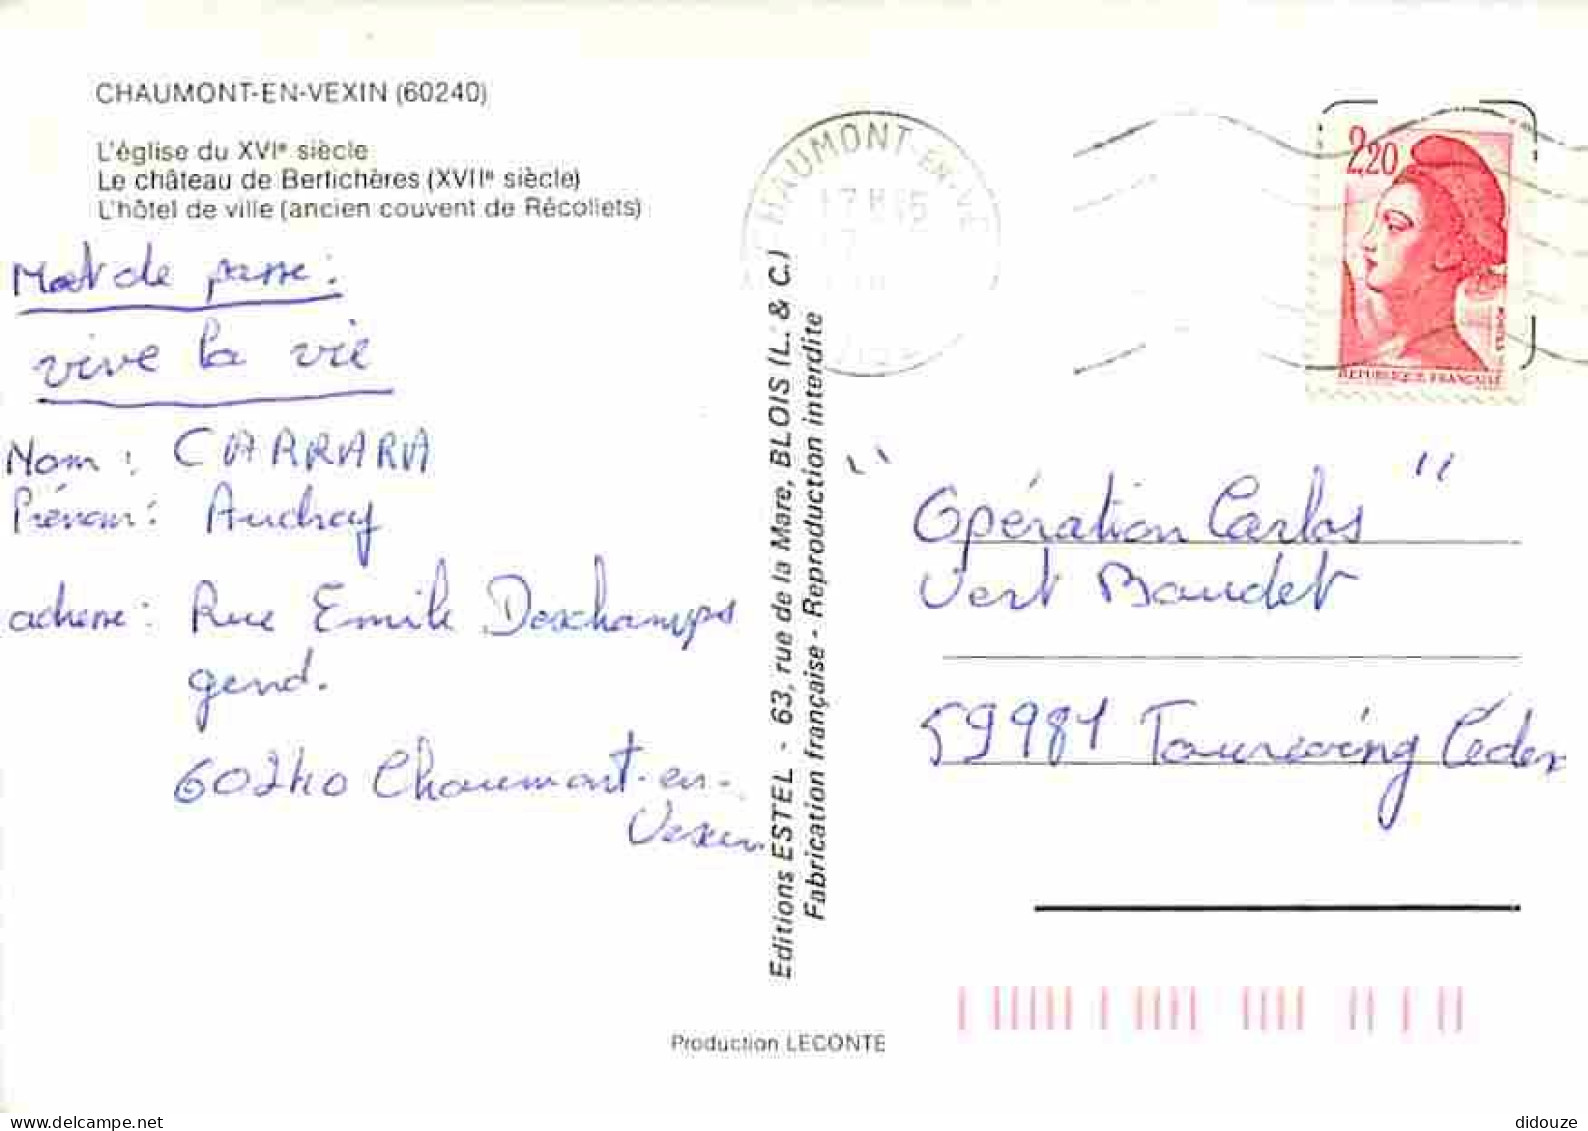 CHAUMONT-EN-VEXIN (60240)
L'église du XVIe siècle
Le château de Bertichères (XVIIe siècle)
L'hôtel de ville (ancien couvent de Récollets)
Mot de passe :
vive la vie
Nom : CARRARA
Prénom : Audrey
adresse : Rue Emile Deschamps
gend.
60240 Chaumont-en-
Vexin
Editions ESTEL - 63, rue de la Mare, BLOIS (L. & C.)
Fabrication française - Reproduction interdite
Production LECONTE
HAUMONT-EN-VE
17 H 15
2,20
POSTES
REPUBLIQUE FRANÇAISE
"Opération Carlos"
Vert Baudet
59981 Tourcoing Cédex
didouze